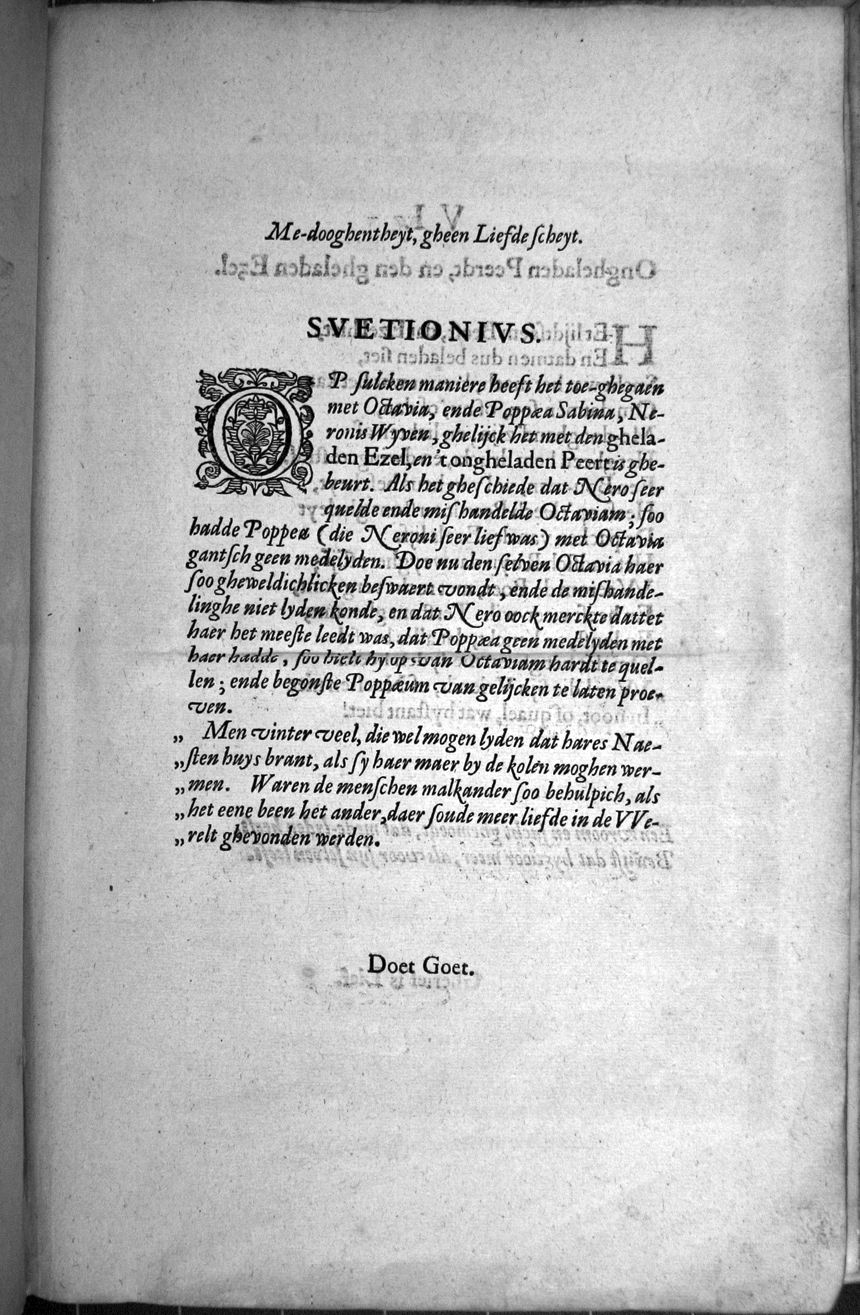 Me-dooghentheyt, gheen Liefde ſcheyt.
SVETIONIVS.
OP ſulcken maniere heeft het toe-ghegaen
met Octavia, ende Poppæa Sabina, Ne-
ronis Wyven, ghelijck het met den ghela-
den Ezel, en't ongheladen Peert is ghe-
beurt. Als het gheſchiede dat Nero ſeer
quelde ende miſhandelde Octaviam; ſoo
hadde Poppea (die Neroni ſeer lief was) met Octavia
gantſch geen medelyden. Doe nu den ſelven Octavia haer
ſoo gheweldichlicken beſwaert vondt, ende de miſhande-
linghe niet lyden konde, en dat Nero oock merckte dattet
haer het meeſte leedt was, dat Poppæa geen medelyden met
haer hadde, ſoo hielt hy op van Octaviam hardt te quel-
len; ende begonſte Poppæum van gelijcken te laten proe-
ven.
„ Men vinter veel, die wel mogen lyden dat hares Nae-
„ſten huys brant, als ſy haer maer by de kolen moghen wer-
„men. Waren de menſchen malkander ſoo behulpich, als
„het eene been het ander, daer ſoude meer liefde in de VVe-
„relt ghevonden werden.
Doet Goet.